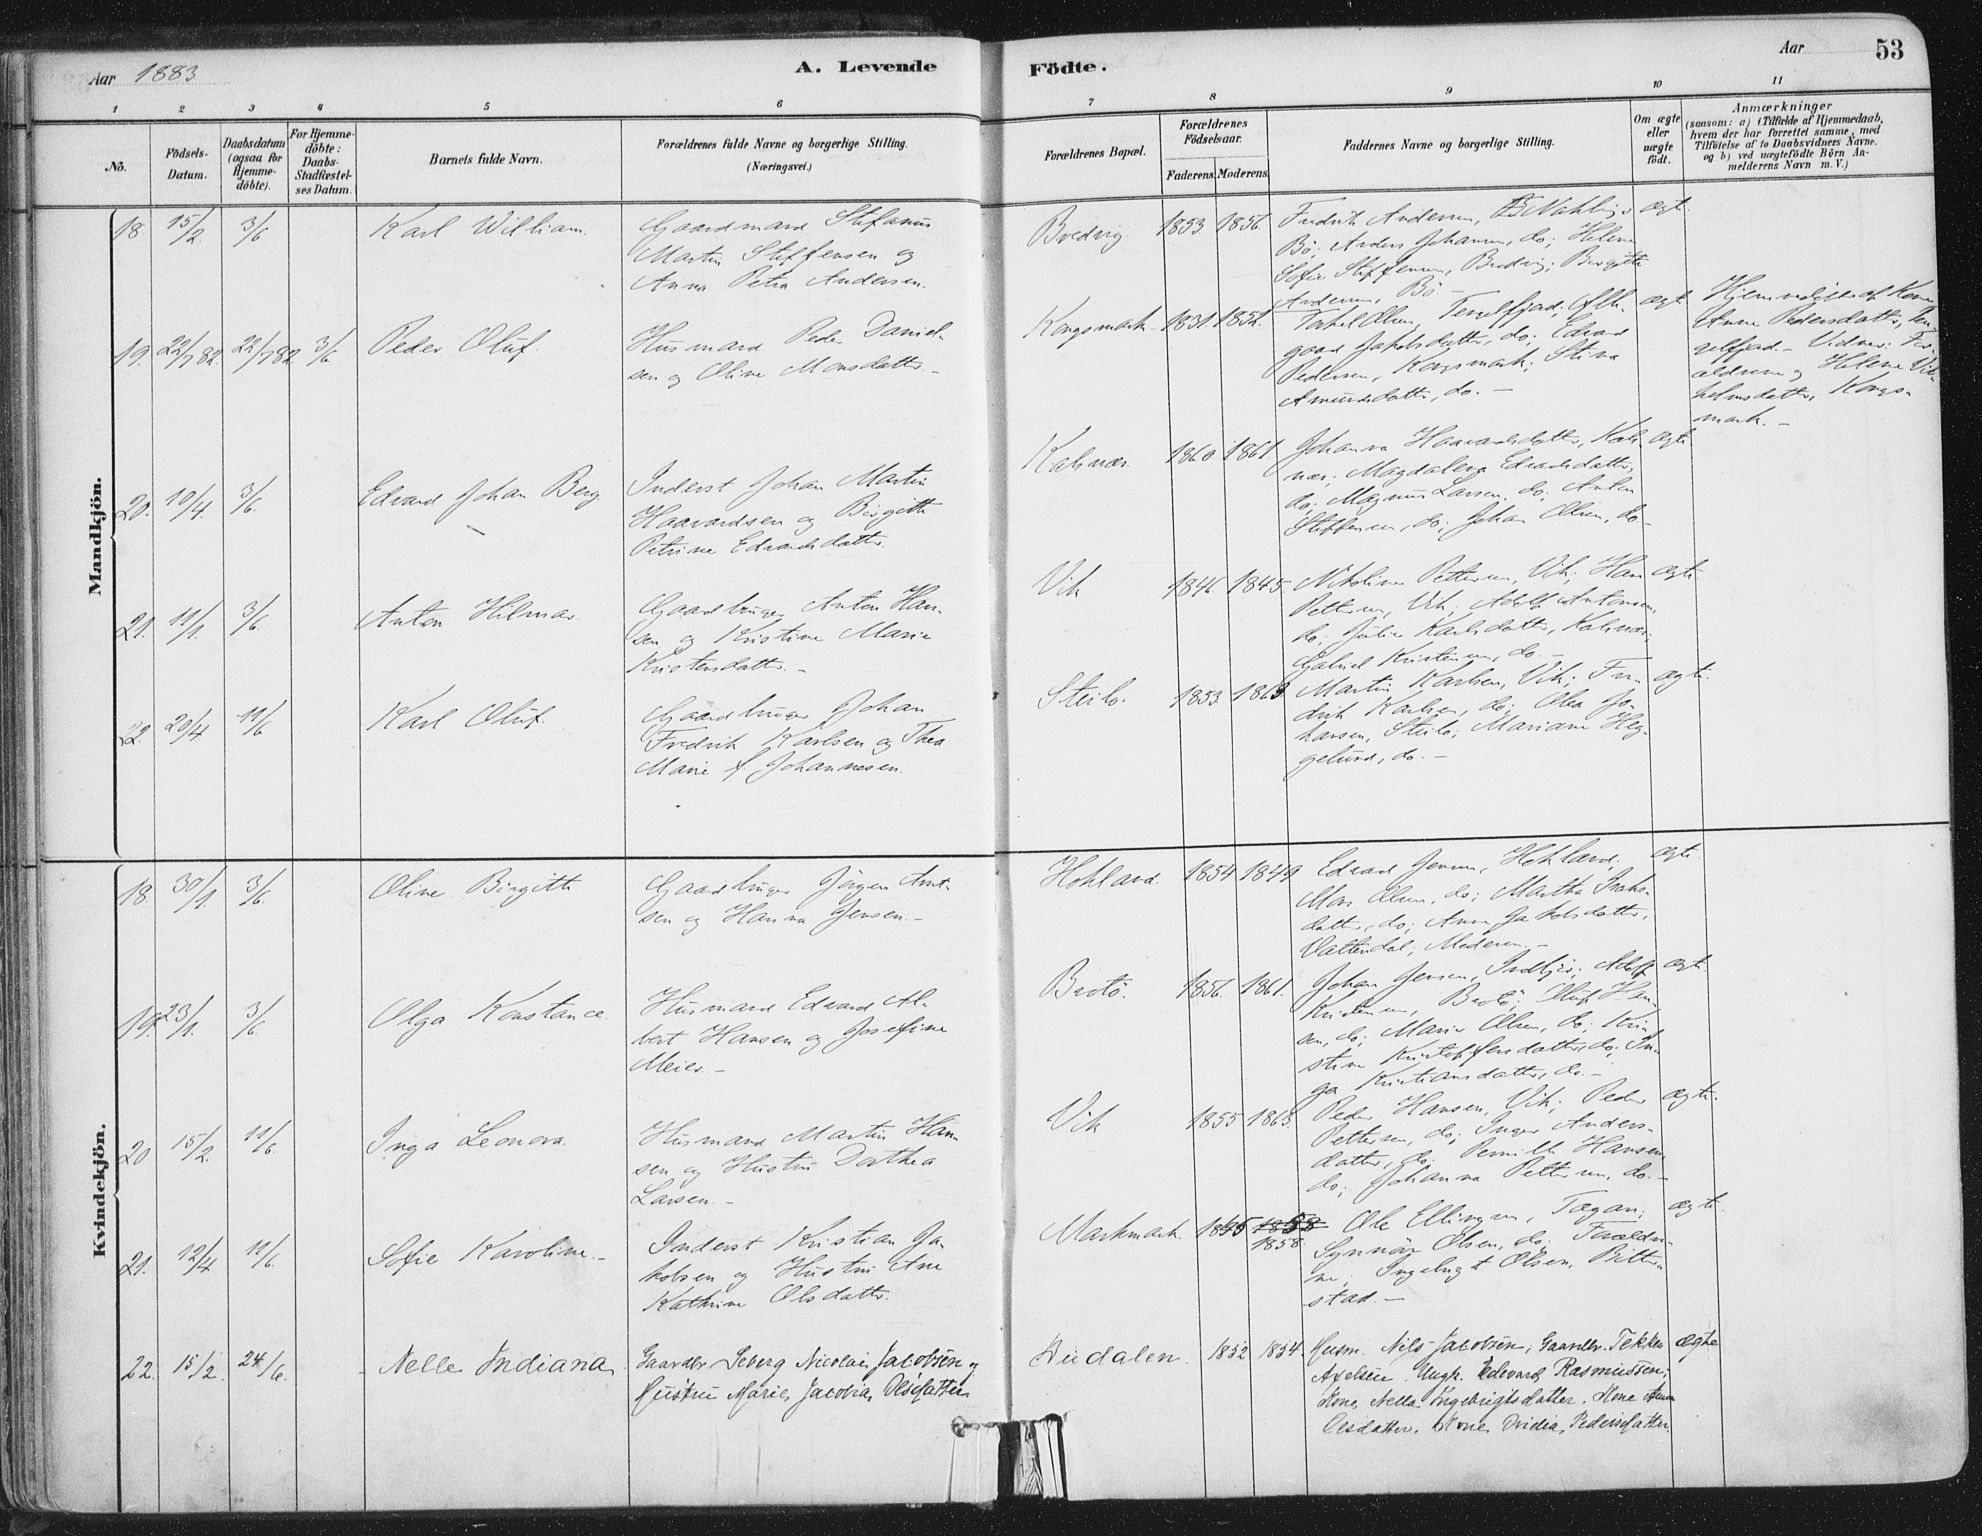 Aar 1883
A. Levende
Födte.
Aar
53
1 2 3 4 5 6 7 8 9 10 11
No.
Födsels-
Datum.
Daabsdatum
(ogsaa for
Hjemme-
döbte).
For Hjemme-
döbte:
Daabs-
Stadfæstel-
ses Datum.
Barnets fulde Navn.
Forældrenes fulde Navne og borgerlige Stilling.
(Næringsvei.)
Forældrenes Bopæl.
Forældrenes
Födselsaar.
Faderens. Moderens.
Faddernes Navne og borgerlige Stilling.
Om ægte
eller
uægte
födt.
Anmærkninger
(saasom: a) i Tilfælde af Hjemmedaab,
hvem der har forrettet samme, med
Tilföielse af to Daabsvidners Navne.
og b) ved uægtefödte Börn An-
melderens Navn m. V.)
Mandkjön.
18 15/2. 3/6 Karl William.
Gaardmand Stefanus
Martin Steffensen og
Anna Petra Andersen.
Bredvig. 1853. 1856.
Fredrik Andersen,
Bö; Anders Johansen, do; Helena
Sofie Steffensen, Bredvig; Birgitte
Andersen, Bö.
ægt.
19. 22/7 82. 22/7 82 3/6 Peder Oluf.
Husmand Peder Daniel-
sen og Oline Monsdatter.
Kongsmark. 1831. 1851.
Olsen, Tengelfjord;
Jakobsdatter, do; Edvard
Pedersen, Kongsmark; Stina
Amundsdatter, do. -
ægt.
Hjemmedöbt af Kone
Anne Pedersdatter, Ten-
gelfjord - Vidner: For-
ældrene og Helene Vil-
helmsdatter, Kongs-
mark. -
20. 10/4. 3/6. Edvard Johan Berg.
Inderst Johan Martin
Haavardsen og Birgitte
Petrine Edvardsdatter.
Kalsnæs. 1860. 1861.
Johanna Haavardsdatter, Kals-
næs; Magdalena Edvardsdatter,
do; Magnus Larsen, do; Anton
Steffensen, do; Johan Olsen, do-
ægte
21. 11/1. 3/6. Anton Hilmar.
Gaardbruger Anton Han-
sen og Kristine Marie
Kristensdatter. -
Vik 1846 1845.
Nikoline Pettersen, Vik; Hans
Pettersen, Vik; Adolf Antonsen,
do; Julie Karlsdatter, Kalsnæs;
Gabriel Kristensen, do. -
ægte
22. 20/4 11/6 Karl Oluf.
Gaardbruger Johan
Fredrik Karlsen og Thea
Marie f. Johannesen.
Steilo. 1853. 1863
Martin Karlsen, Vik; Fre-
drik Karlsen, do; Olea Jo-
hansen, Steilo; Mariane Heg-
gelund, do. -
ægte.
Kvindekjön.
18. 30/1. 3/6. Oline Birgitte
Gaardbruger Jörgen Arnt-
sen og Hanna Jensen. -
Hokland. 1854 1849
Edvard Jensen, Hokland;
Mons Olsen, do; Martha Isaks-
datter, do; Anne Jakobsdatter,
Vattendal; Moderen. -
ægte.
19. 23/1. 3/6. Olga Konstance.
Husmand Edvard Al-
bert Hansen og Josefine
Meier. -
Brotö. 1856. 1861.
Johan Jensen, Adolf
Kristensen, Brotö; Oluf Han-
sen, do; Marie Olsen, do; Kri-
stine Kristoffersdatter, do; In-
ga Kristiansdatter, do. -
ægt.
20 15/2. 11/6. Inga Leonora.
Husmand Martin Han-
sen og Hustru Dorthea
Larsen. -
Vik 1855 1863.
Peder Hansen, Vik; Peder
Pettersen, do; Inger Anders-
datter, do; Pernille Hansen
do; Johanna Pettersen, do. -
ægte.
21. 12/4 11/6. Sofie Karoline. -
Inderst Kristian Ja-
kobsen og Hustru Ane
Kathrine Olsdatter.
Markmark. 1845 1858
1858.
Ole Ellingsen, Tægan;
Synnöv Olsen, do; Forældre-
ne; Ingebrigt Olsen, Bitter-
stad. -
ægte.
22. 15/2. 24/6. Nelle Indiana
Gaardbr. Seberg Nicolai Jacobsen og
Hustru Marie Jacobia Olsdatter
Audalen. 1852 1854.
Husm. Nils Jacobsen, Gaardbr. Tekken
Axelsen. Ungk. Edevard Rasmussen.
Kone, Nella Ingebrigtsdatter. Kone Anna
Olsdatter. Kone, Ovidia, Pedersdatter.
ægte